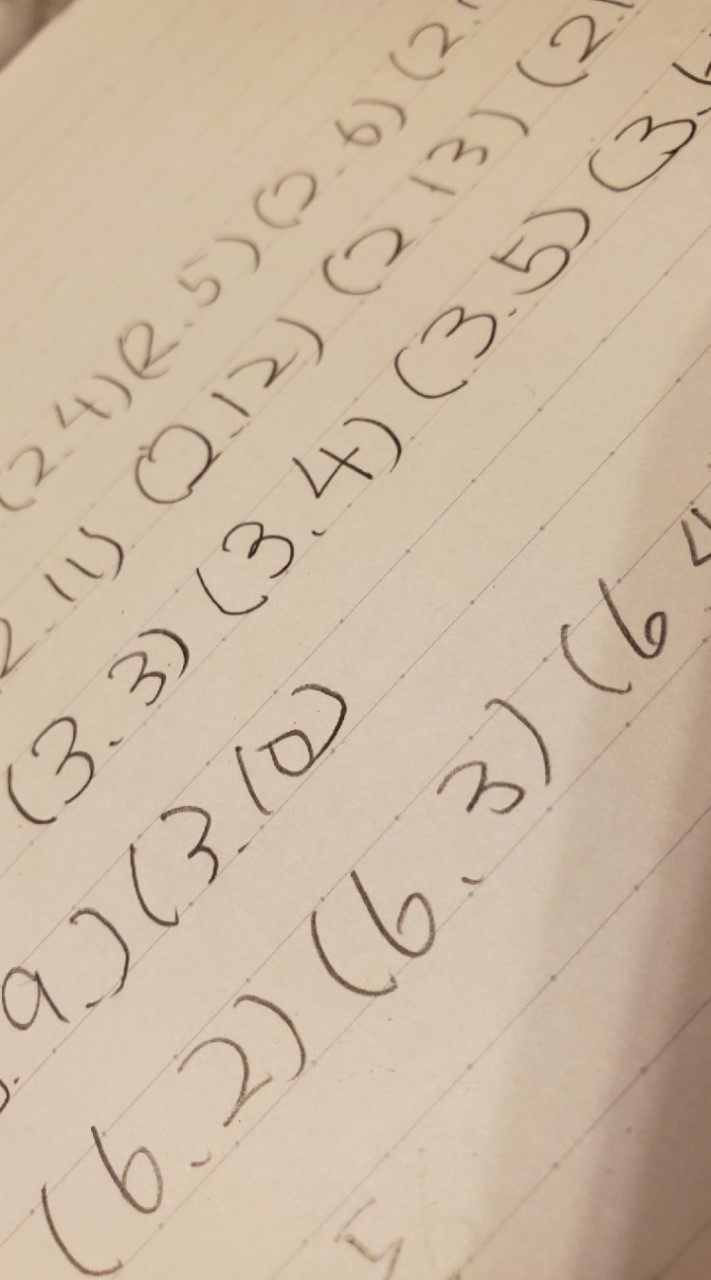 (2.4) (2.5) (2.6) (2.
2.11) (2.12) (2.13) (2.1
(3.3) (3.4) (3.5) (3.
.9) (3.10)
(6.2) (6.3) (6.4
5